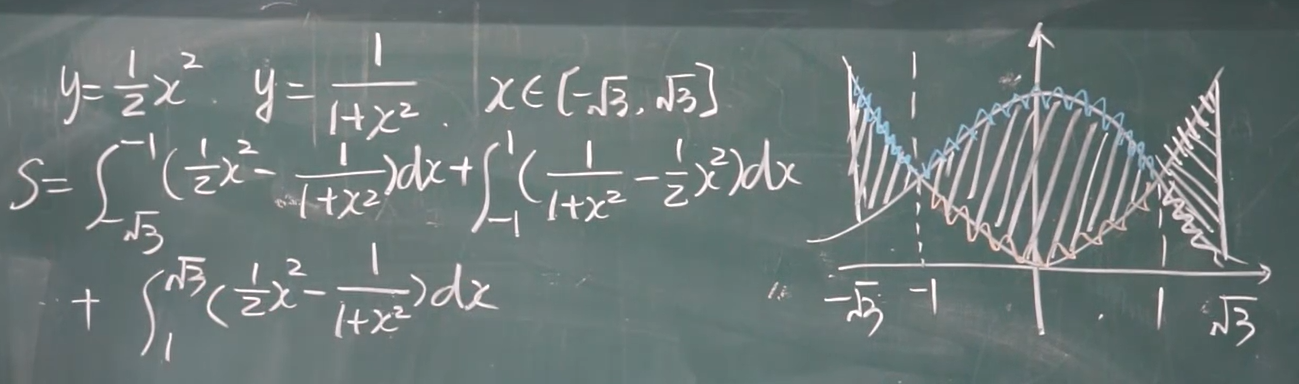 y=\frac{1}{2}x^2. y=\frac{1}{1+x^2}. x∈[-√3,√3]
S=\int_{-√3}^{-1}(\frac{1}{2}x^2-\frac{1}{1+x^2})dx+\int_{-1}^{1}(\frac{1}{1+x^2}-\frac{1}{2}x^2)dx
+\int_{1}^{√3}(\frac{1}{2}x^2-\frac{1}{1+x^2})dx
-√3 -1 1 √3